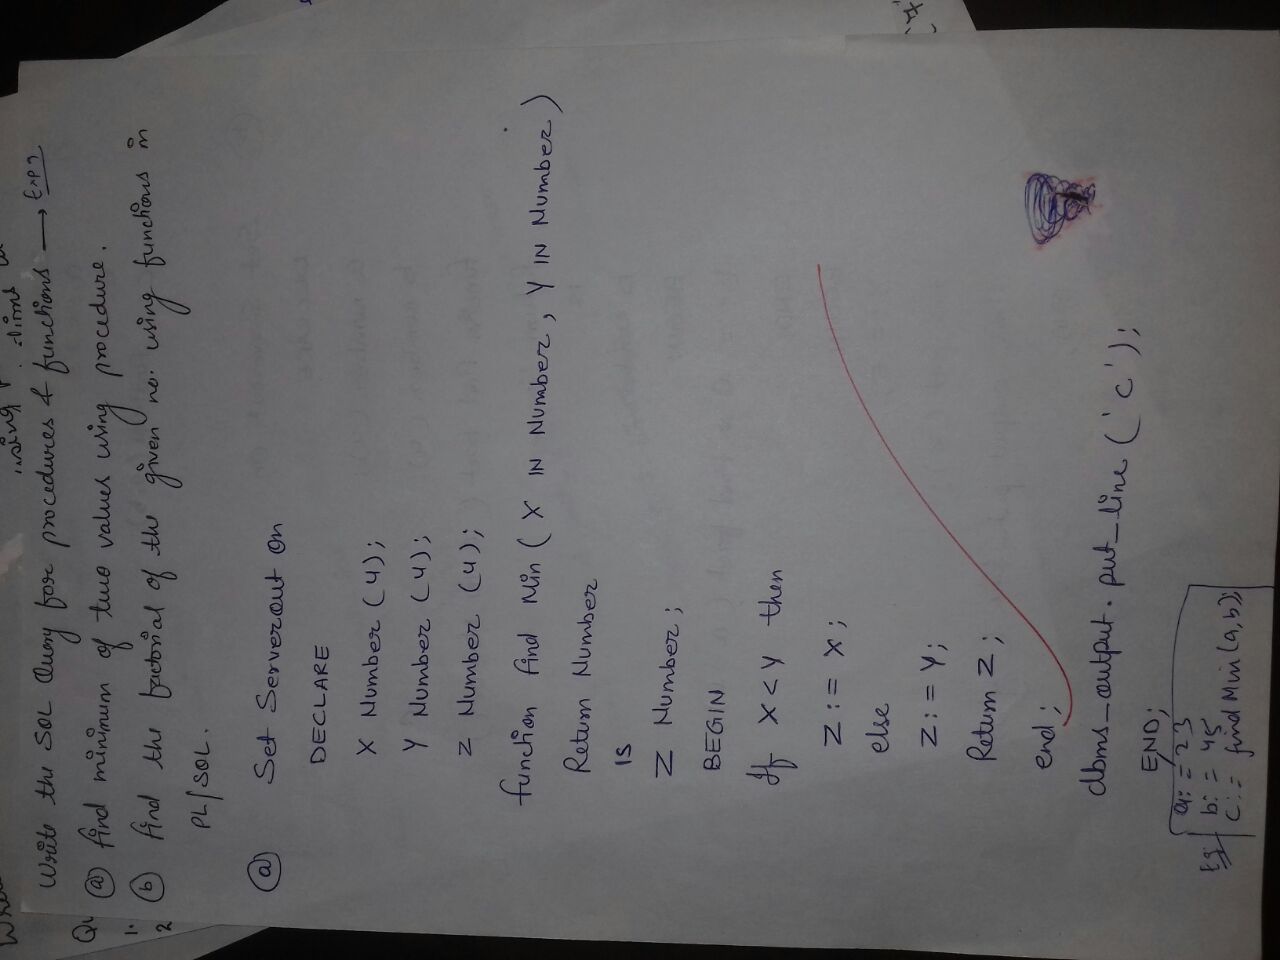 Write the SQL Query for procedures & functions → Exp 9
Qu
(a) find minimum of two values using procedure.
1.
(b) find the factorial of the given no. using functions in
2
PL/SQL.
(a) Set Serverout On
DECLARE
X Number (4);
Y Number (4);
Z Number (4);
function find Min ( X IN Number, Y IN Number)
Return Number
IS
Z Number;
BEGIN
If X < Y then
Z := X;
else
Z := Y;
Return Z;
end;
dbms_output.put_line ('c');
END;
Eg: a := 23
b := 45
c := find Min (a,b);